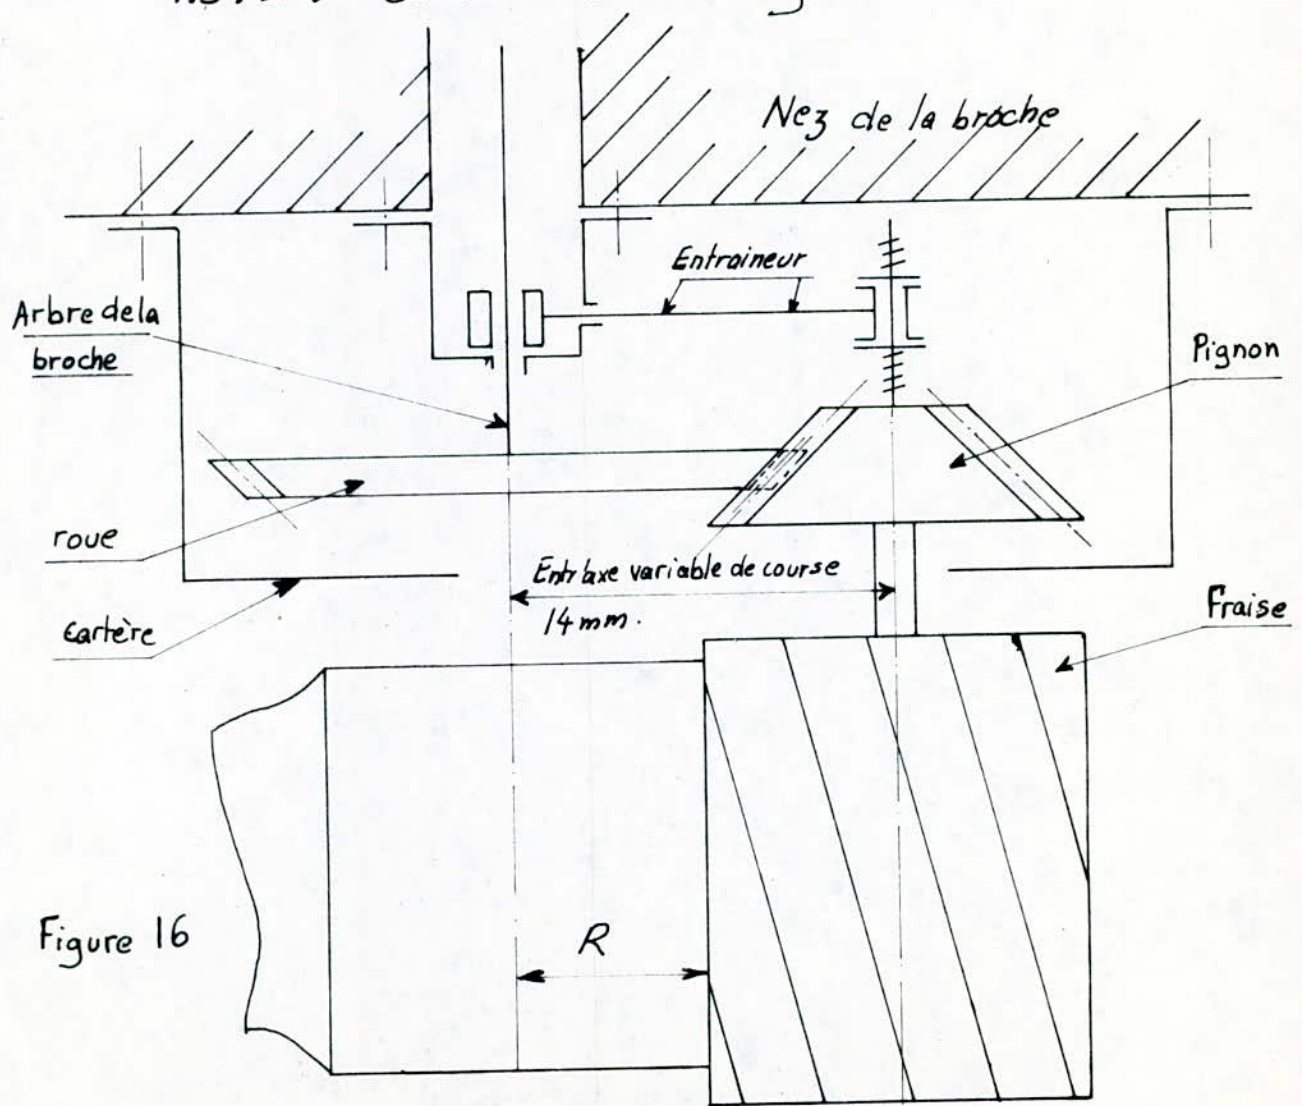 Nez de la broche
Entraineur
Arbre de la
broche
Pignon
roue
Entraxe variable de course
14 mm.
Fraise
Cartère
R
Figure 16